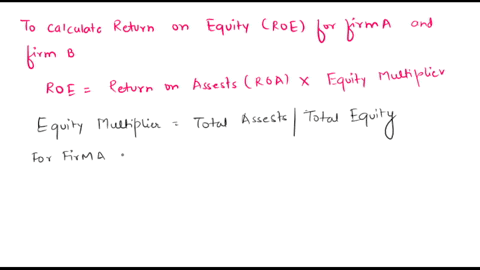 To calculate Return on Equity (ROE) for firm A and
firm B
ROE = Return on Assests (ROA) × Equity Multiplier
Equity Multiplier = Total Assests | Total Equity
For FirM A .